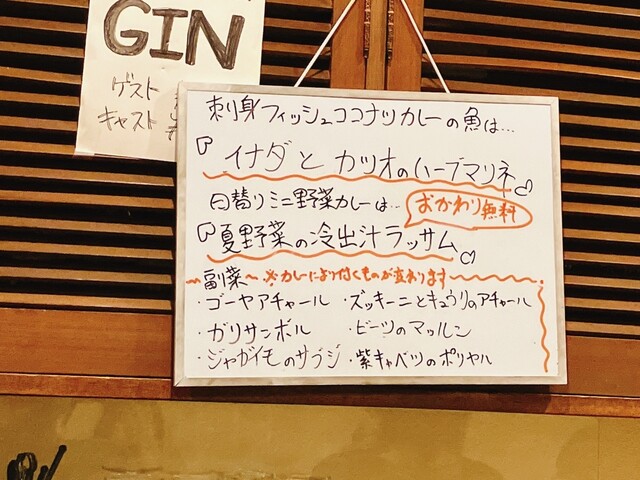 GIN
ゲスト
キャスト
刺身フィッシュココナツカレーの魚は…
『イナダとカツオのハーブマリネ』
日替りミニ野菜カレーは…
おかわり無料
『夏野菜の冷出汁ラッサム』
副菜〜※カレーにより付くものが変わります〜
・ゴーヤアチャール ・ズッキーニとキュウリのアチャール
・ガリサンボル ・ビーツのマッルン
・ジャガイモのサブジ ・紫キャベツのポリヤル